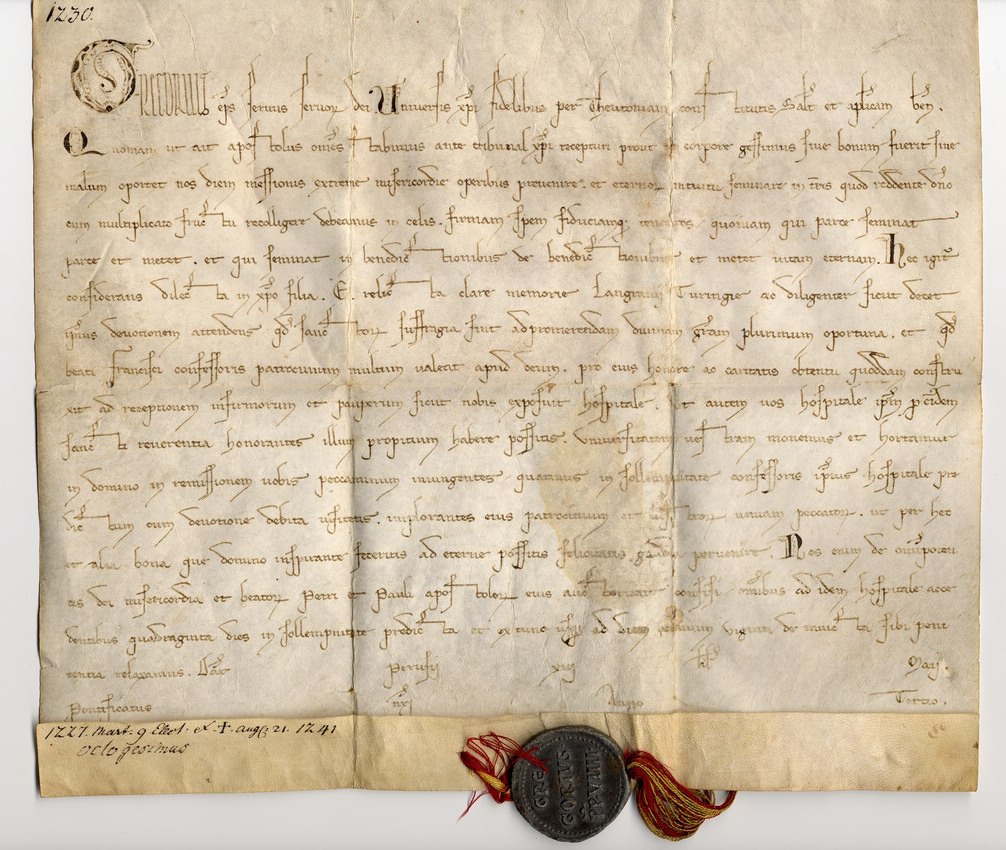 1230.
Gregorius eps servus servor dei. Universis xpi fidelibus per Theutoniam constitutis Salt et aplicam ben.
Quoniam ut ait apostolus omes stabimus ante tribunal xpi recepturi prout in corpore gessimus sive bonum fuerit sive
malum oportet nos diem messionis extreme misericordie operibus prevenire. et eternor intuitu seminare in tris quod reddente dno
cum multiplicato fructu recolligere debeamus in celis. firmam spem fiduciamq tenentes. quoniam qui parce seminat
parce et metet. et qui seminat in benedictionibus de benedictionibus et metet vitam eternam. Hec igit
considerans dilecta in xpo filia. E. relicta clare memorie Langravii Turingie ac diligenter sicut decet
ipius devotionem attendens qd sanctor suffragia sint ad promerendam divinam gram plurimum oportuna. et qd
beati Francisci confessoris patrocinium multum valeat apud deum. pro eius honore ac caritatis obtentu quoddam constru
xit ad receptionem infirmorum et pauperum sicut nobis exposuit hospitale. Ut autem vos hospitale ipm
sancta reverentia honorantes illum propitium habere possitis. Universitatem vestram monemus et hortamur
in domino in remissionem vobis peccaminum iniungentes quatinus in sollempnitate confessoris ipius hospitale pre
dictum cum devotione debita visitetis. implorantes eius patrocinium et veniam peccator. ut per hec
et alia bona que domino inspirante feceritis ad eterne possitis felicitatis gaudia pervenire. Nos enim de omipoten
tis dei misericordia et beator Petri et Pauli apostolor eius auctoritate confisi omibus ad idem hospitale acce
dentibus quadraginta dies in sollempnitate predicta et ex tunc usq ad diem viginti de iniuncta sibi peni
tentia relaxamus. Dat Perusii xiii kl Maij.
Pontificatus nri Anno Tertio.
1227. Mart. 9 Elect. et † aug. 21. 1241
octogesimus
GRE
GORIVS
PP VIIII